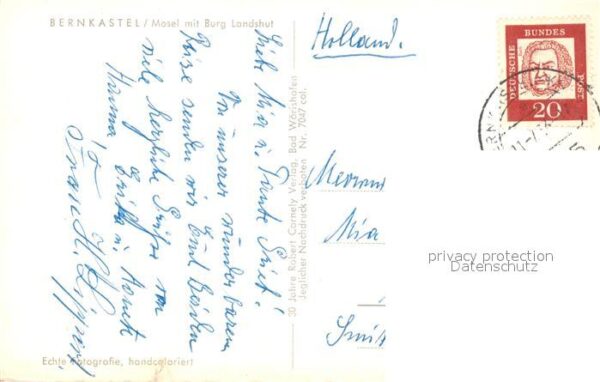 BERNKASTEL / Mosel mit Burg Landshut
Liebe Mia u. Tante Siet!
Von unserer wunderbaren
Reise senden wir Euch Beiden
viele herzliche Grüße von
Hanna
Holland.
30 Jahre Robert Cornely Verlag, Bad Wörishofen
Jeglicher Nachdruck verboten Nr. 7047 col.
Mia
DEUTSCHE BUNDES POST
20
privacy protection
Datenschutz
Echte Fotografie, handcoloriert